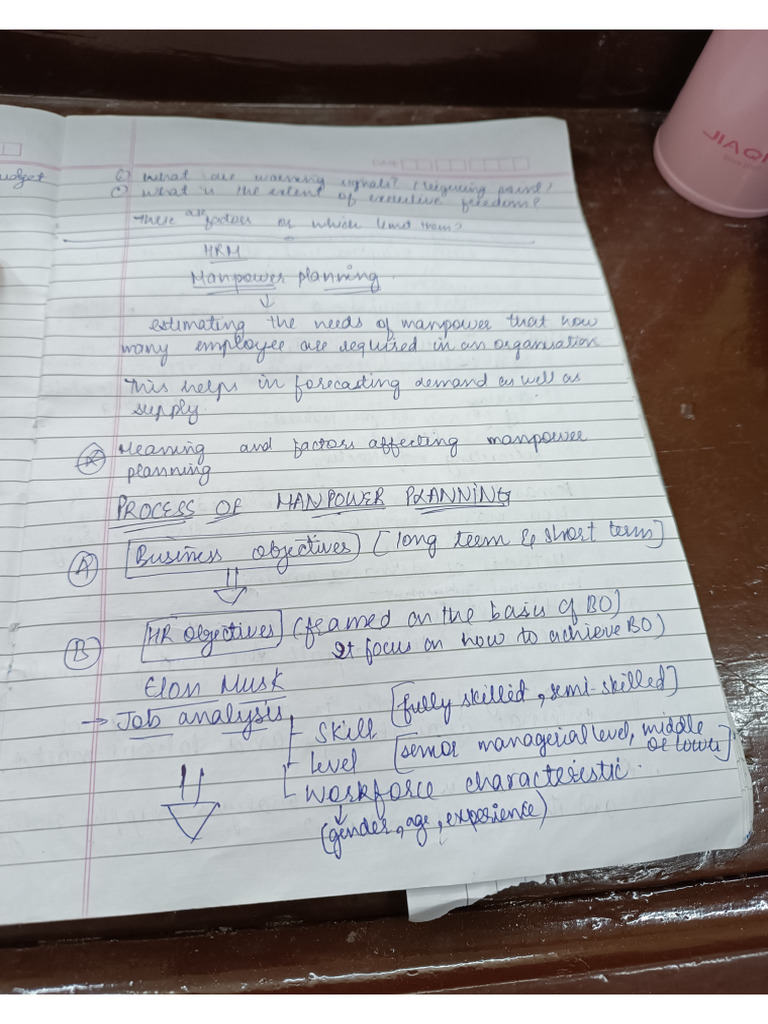 udget
DATE
b) What are warning signals? (reigning point)
c) What is the extent of executive freedom?
There are factors or which limit them?
HRM
Manpower planning.
↓
estimating the needs of manpower that how
many employee are required in an organisation
This helps in forecasting demand as well as
supply.
* Meaning and factors affecting manpower
planning
PROCESS OF MANPOWER PLANNING
A [Business objectives] [long term & short term]
⇓
B [HR objectives] (framed on the basis of BO)
It focus on how to achieve BO)
Elon Musk
→ Job analysis
- Skill [fully skilled, semi-skilled]
- level [senior managerial level, middle
or lower]
- Workforce characteristic.
↓
(gender, age, experience)
JIAQI